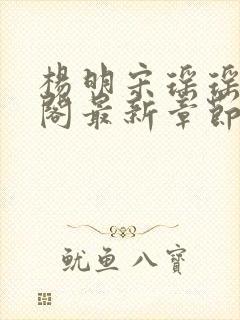 楊明宋瑤瑤
閣最新章節
魷魚八寶